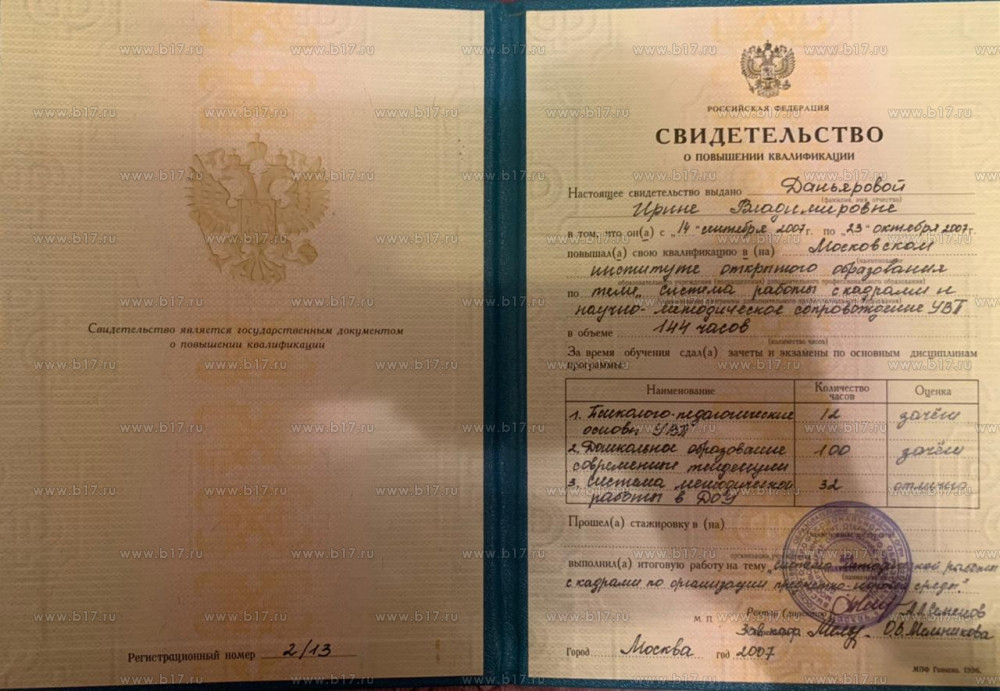 Свидетельство является государственным документом
о повышении квалификации
Регистрационный номер 2/13
РОССИЙСКАЯ ФЕДЕРАЦИЯ
СВИДЕТЕЛЬСТВО
О ПОВЫШЕНИИ КВАЛИФИКАЦИИ
Настоящее свидетельство выдано Даньяровой
(фамилия, имя, отчество)
Ирине Владимировне
в том, что он(а) с „14" сентября 2007г. по „23" октября 2007г.
повышал(а) свою квалификацию в (на) Московском
(наименование
институте открытого образования
образовательного учреждения (подразделения) дополнительного профессионального образования)
по теме „Система работы с кадрами и
научно-методическое сопровождение УВП
в объеме 144 часов
(количество часов)
За время обучения сдал(а) зачеты и экзамены по основным дисциплинам
программы:
Наименование Количество часов Оценка
1. Психолого-педагогические 12 зачёт
основы УВП
2. Дошкольное образование 100 зачёт
современные тенденции
3. Система методической 32 отлично
работы в ДОУ
Прошел(а) стажировку в (на)
выполнил(а) итоговую работу на тему „Система методической работы
с кадрами по организации предметно-развив. среды".
Ректор А.Л.Семенов
М. П.
Зав. кафедр О.В.Мельникова
Город Москва год 2007
www.b17.ru